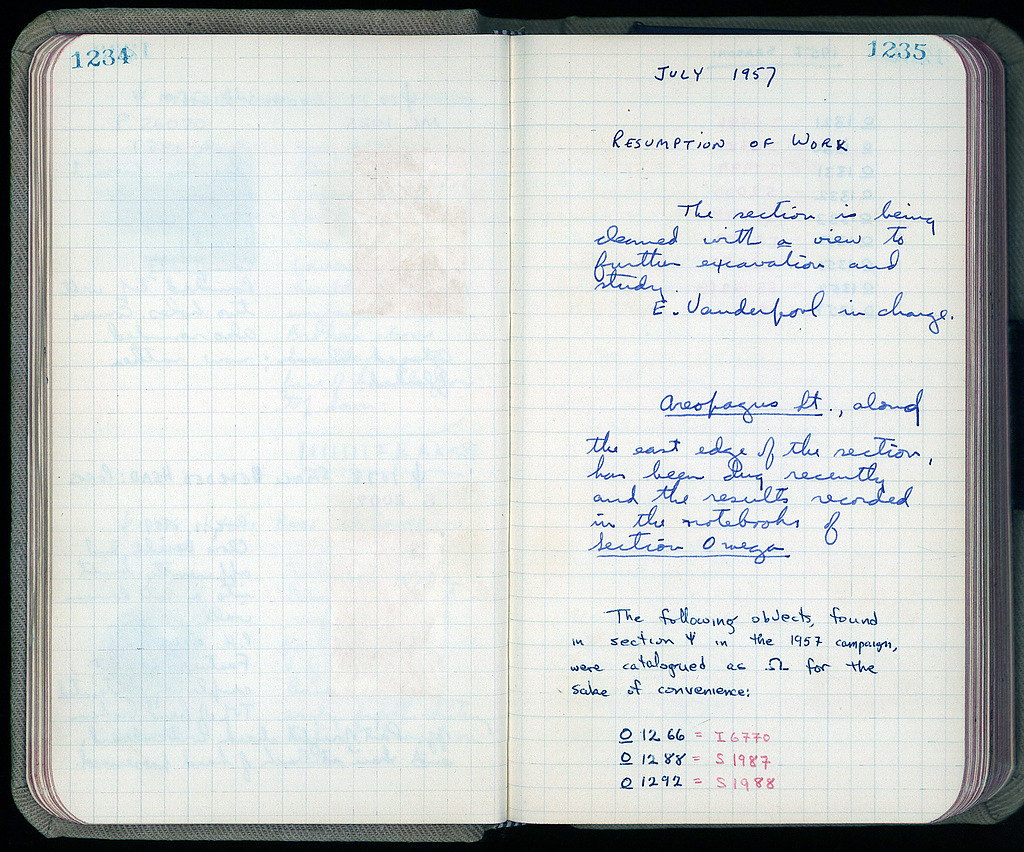 1234
1235
JULY 1957
RESUMPTION OF WORK
The section is being
cleaned with a view to
further excavation and
study.
E. Vanderpool in charge.
Areopagus St., along
the east edge of the section,
has been dug recently
and the results recorded
in the notebooks of
section Omega
The following objects, found
in section Ψ in the 1957 campaign,
were catalogued as Ω for the
sake of convenience:
O 1266 = I 6770
O 1288 = S 1987
O 1292 = S 1988